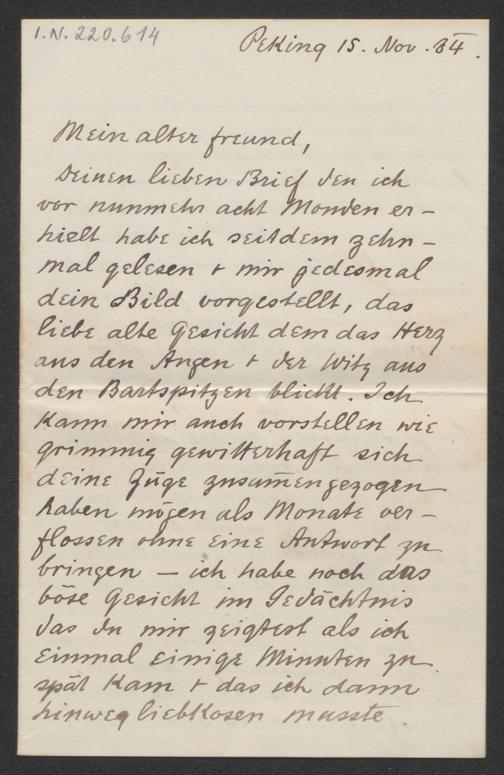 I.N. 220.614
Peking 15. Nov. 34.
Mein alter freund,
Deinen lieben Brief den ich
vor nunmehr acht Monden er-
hielt habe ich seitdem zehn-
mal gelesen + mir jedesmal
dein Bild vorgestellt, das
liebe alte Gesicht dem das Herz
aus den Augen + der Witz aus
den Bartspitzen blickt. Ich
kann mir auch vorstellen wie
grimmig gewitterhaft sich
deine Züge zusam̅engezogen
haben mögen als Monate ver-
flossen ohne eine Antwort zu
bringen — ich habe noch das
böse Gesicht im Gedächtnis
das du mir zeigtest als ich
einmal einige Minuten zu
spät kam + das ich dann
hinweg liebkosen musste.